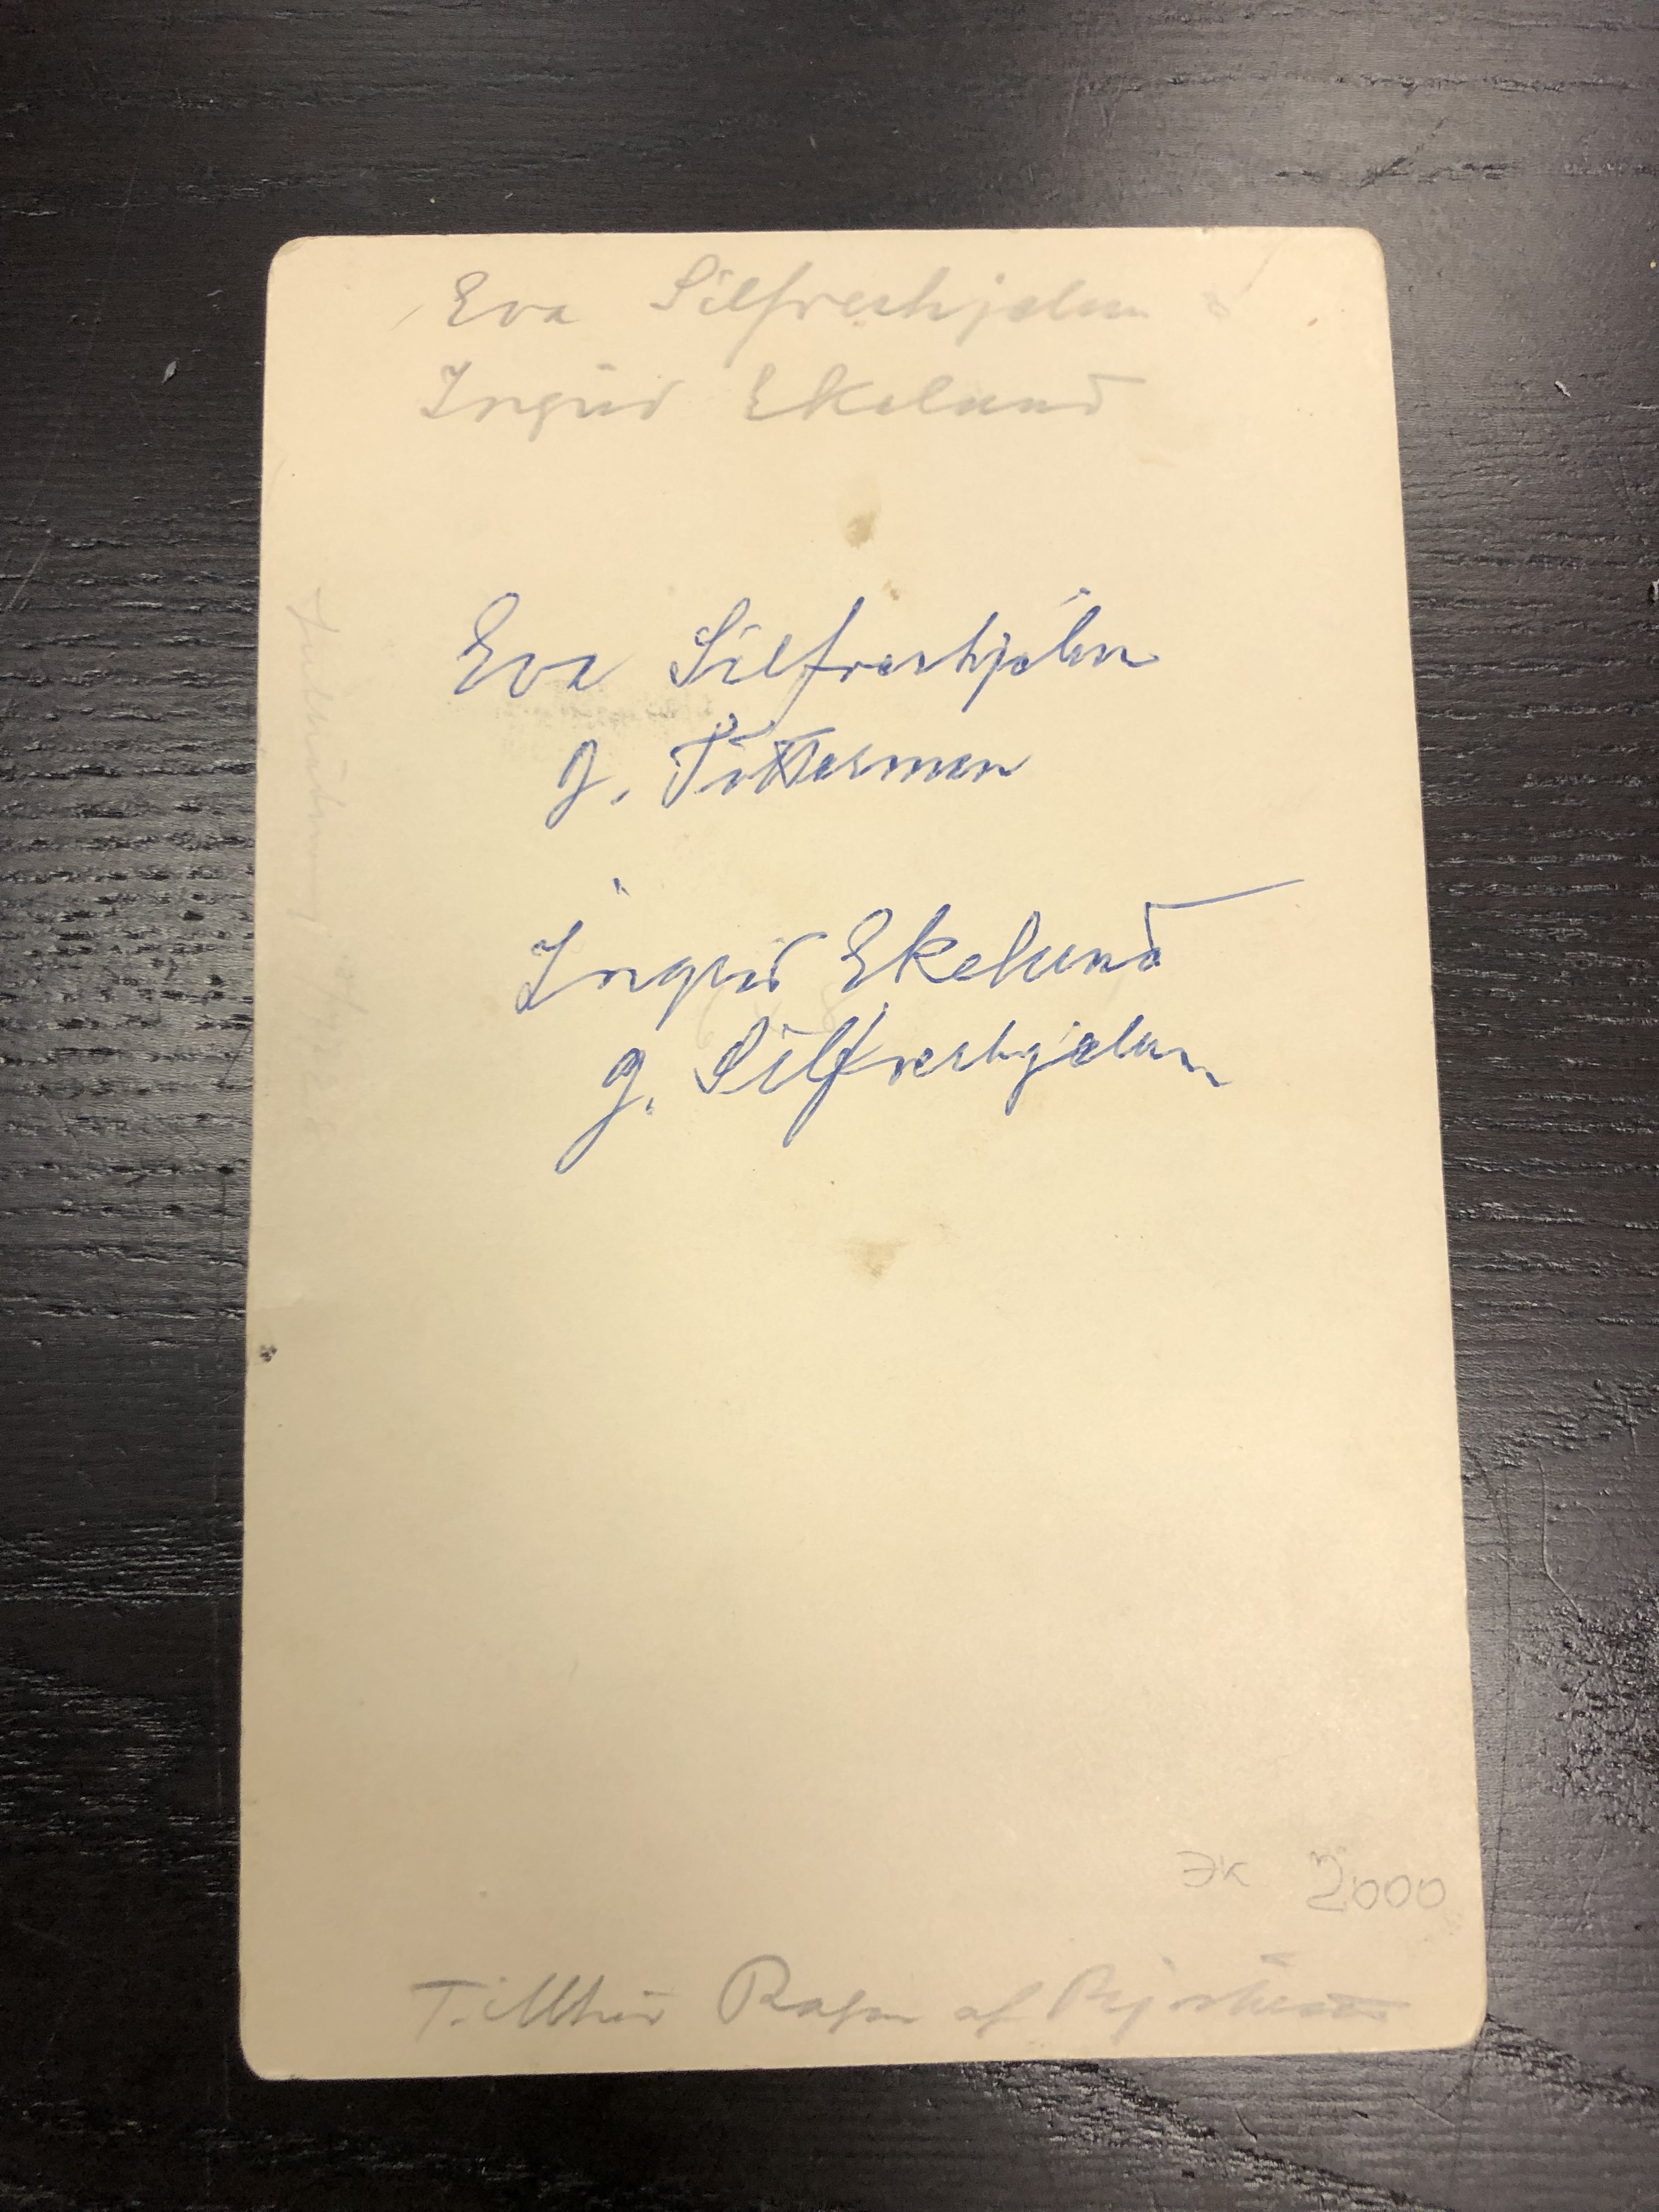 Eva Silfverhjelm
Ingrid Ekelund
Eva Silfverhjelm
g. Tötterman
Ingrid Ekelund
g. Silfverhjelm
ЭК 2000
Tillhör af